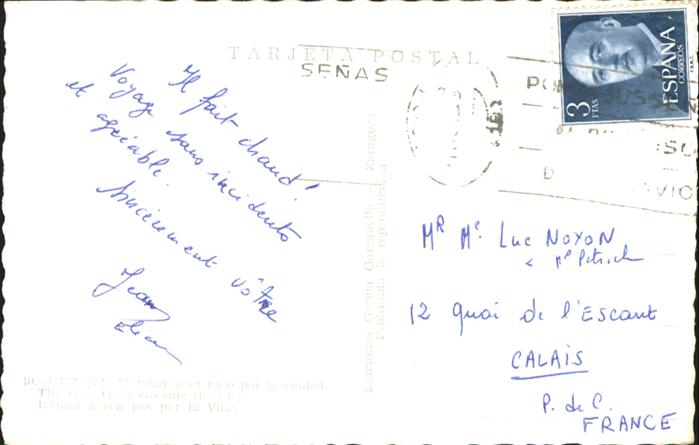 TARJETA POSTAL
SEÑAS
3
PTAS
ESPAÑA
CORREOS
Il fait chaud!
Voyage sans incidents
et agréable.
Sincèrement vôtre
Jean
MR Me Luc NOYON
12 quai de l'Escaut
CALAIS
P. de C.
FRANCE
Ediciones García Garrabella Zaragoza
Prohibida la reproducción
10.—GERONA. El Oñar a su paso por la ciudad.
The river Oñar crossing the city.
L'Oñar à son pas par la Ville.